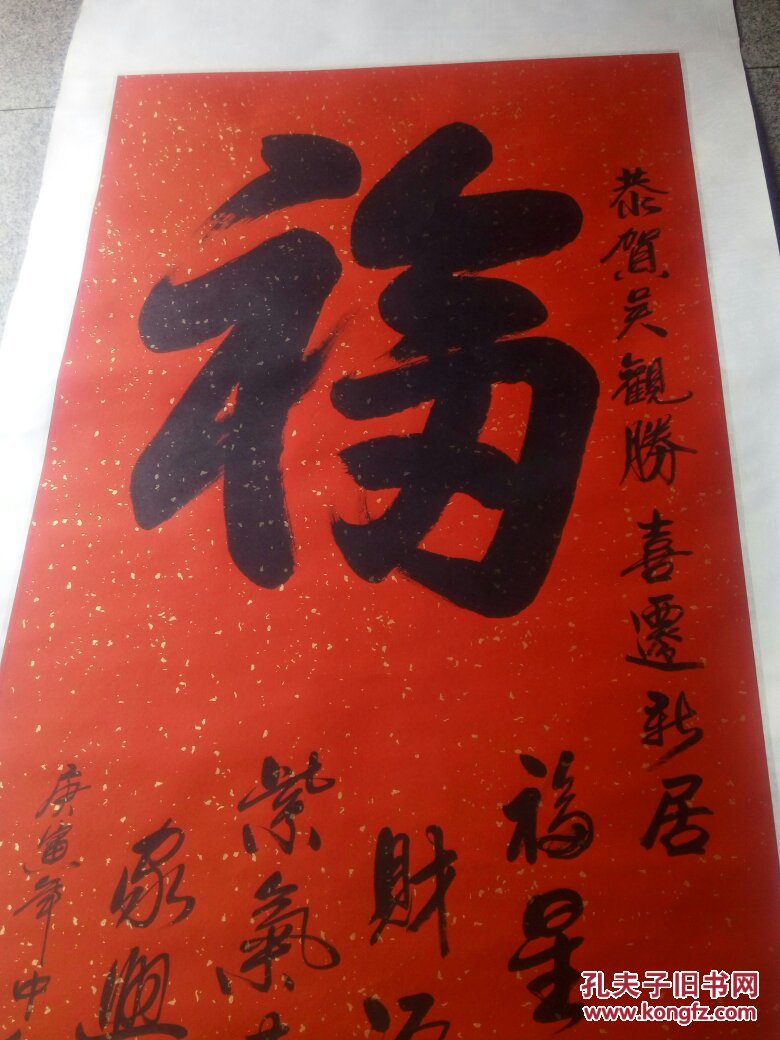 福
恭賀吴觀勝喜遷新居
福星
財
紫氣
家興
庚寅年中
孔夫子旧书网
www.kongfz.com